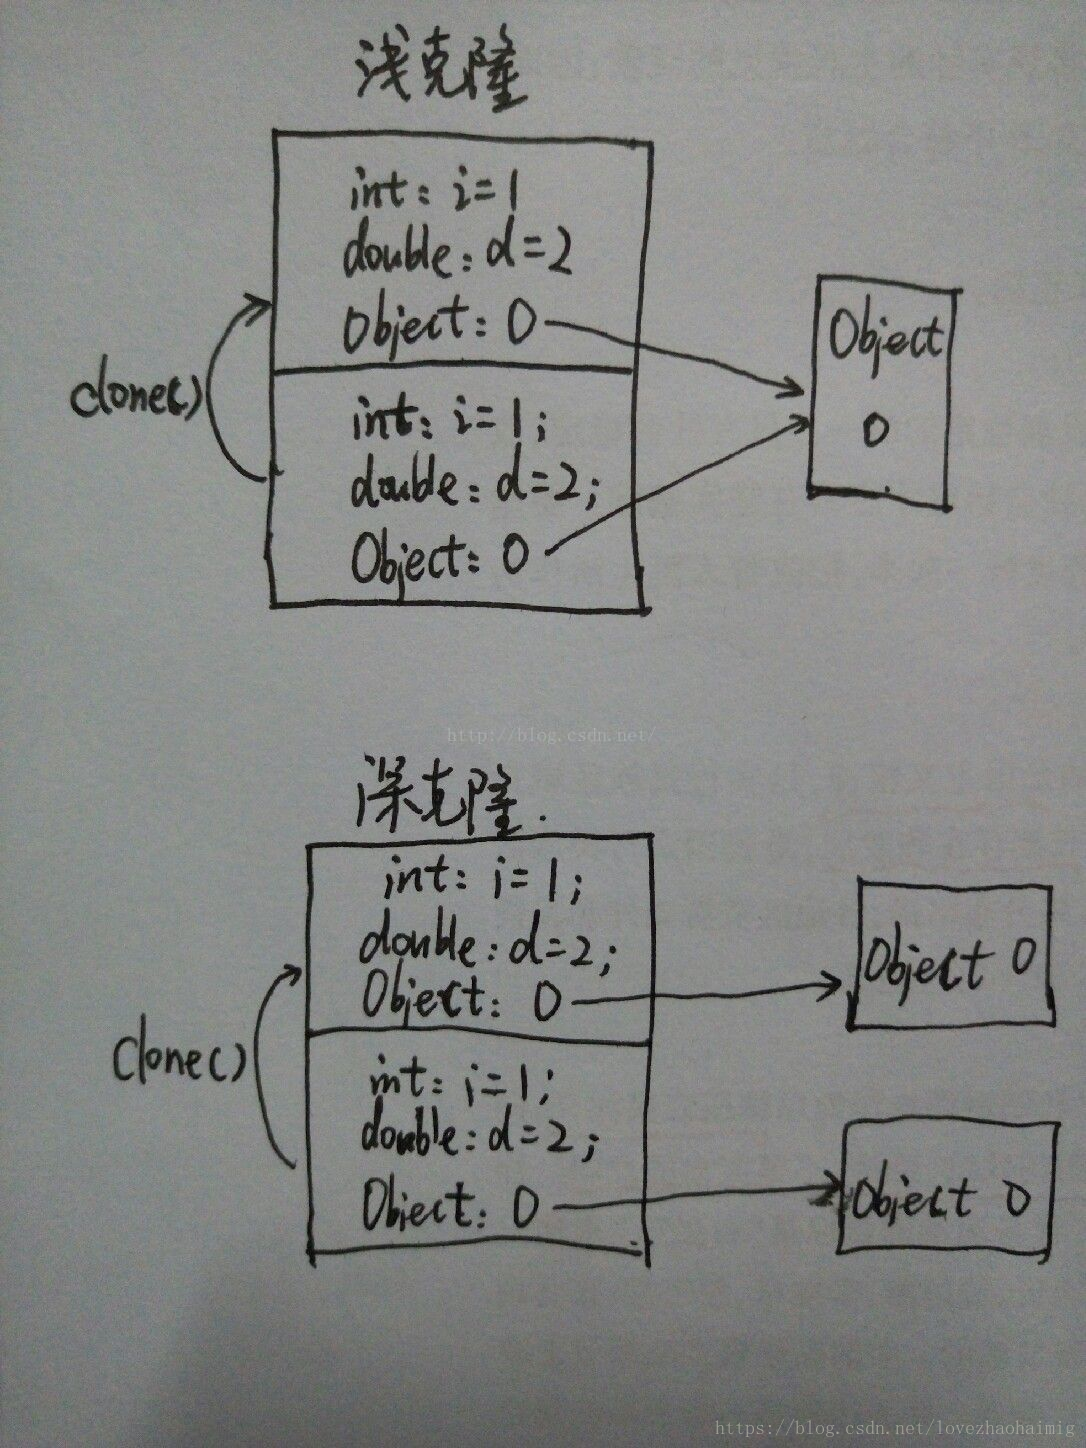 浅克隆
int: i=1
double: d=2
Object: O
clone()
int: i=1;
double: d=2;
Object: O
Object
O
http://blog.csdn.net/
深克隆.
int: i=1;
double: d=2;
Object: O
Object O
clone()
int: i=1;
double: d=2;
Object: O
Object O
https://blog.csdn.net/lovezhaohaimig